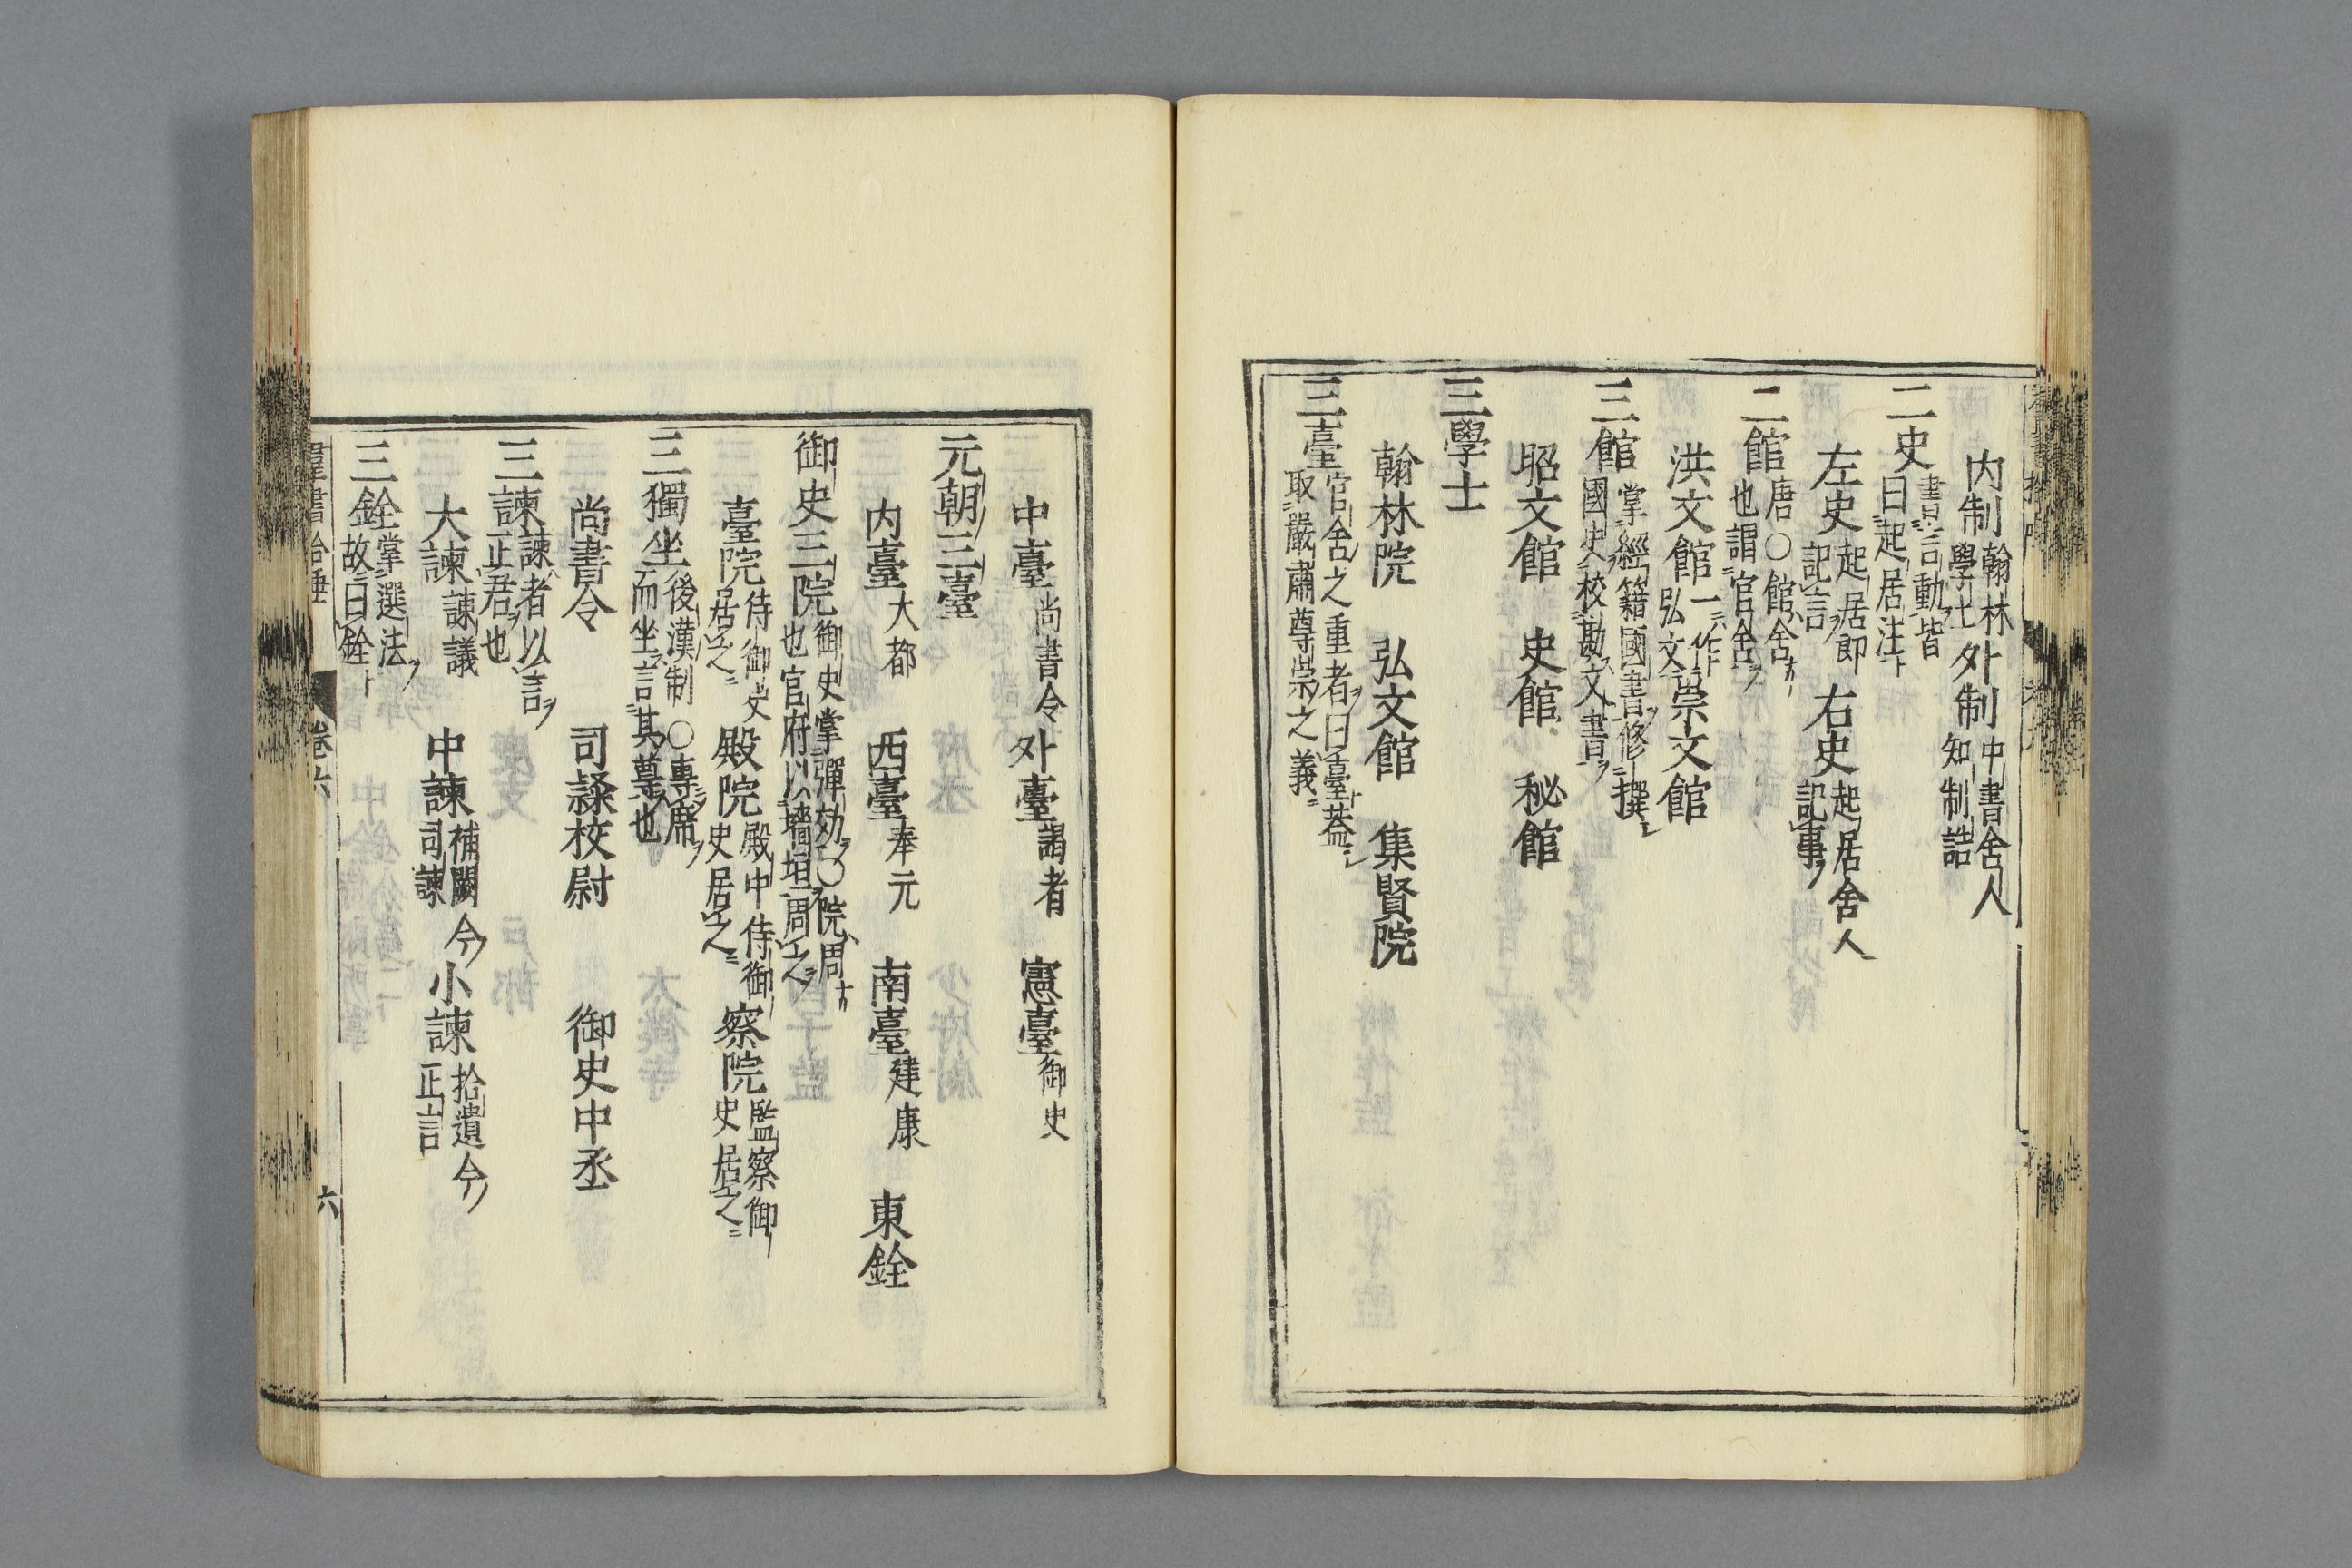 内制翰林學士外制中書舍人知制誥
二史書言動皆曰起居注
左史起居郎記言右史起居舍人記事
二館唐○館舍也謂官舍
洪文館一作弘文崇文館
三館掌經籍國書修撰國史校勘文書
昭文館 史館 秘館
三學士
翰林院 弘文館 集賢院
三臺官舍之重者曰臺蓋取嚴肅尊崇之義
中臺尚書令外臺謁者 憲臺御史
元朝三臺
内臺大都 西臺奉元 南臺建康 東銓
御史三院御史掌彈劾○院周也官府以墻垣周之
臺院侍御史居之殿院殿中侍御史居之察院監察御史居之
三獨坐後漢制○專席而坐言其尊也
尚書令 司隸校尉 御史中丞
三諫諫者以言正君也
大諫諫議 中諫補闕今司諫小諫拾遺今正言
三銓掌選法故曰銓
卷六
六